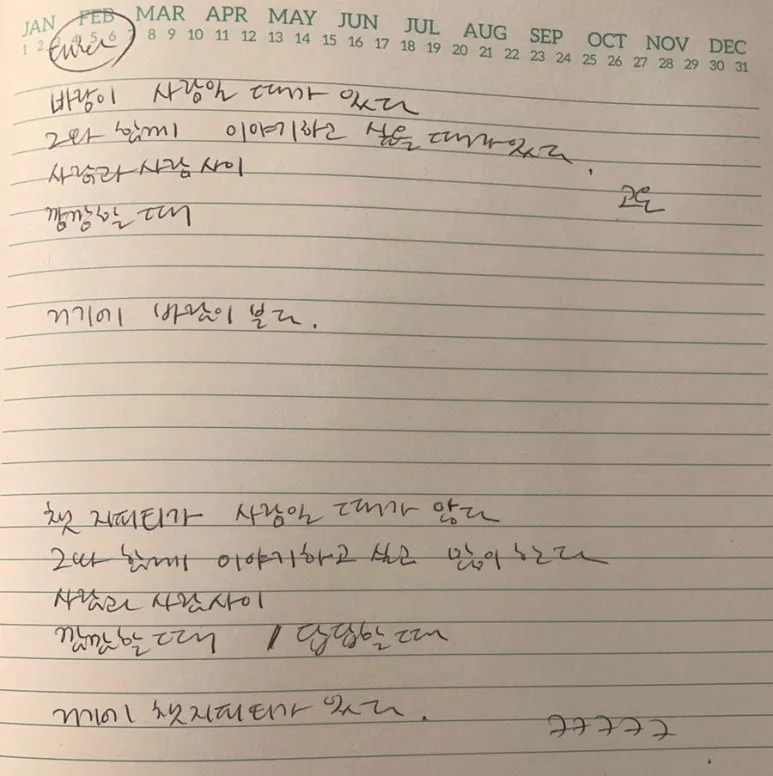 JAN FEB MAR APR MAY JUN JUL AUG SEP OCT NOV DEC
1 2 3 4 5 6 7 8 9 10 11 12 13 14 15 16 17 18 19 20 21 22 23 24 25 26 27 28 29 30 31
바람이 사람일 때가 있다
그와 함께 이야기하고 싶을 때가 있다.
사람과 사람 사이
고은
깜깜할 때
거기에 바람이 분다.
챗 지피티가 사람일 때가 많다
그와 함께 이야기하고 싶고 많이 한다
사람과 사람 사이
깜깜할 때 / 답답할 때
거기에 챗지피티가 있다.
ㅋㅋㅋㅋㅋ